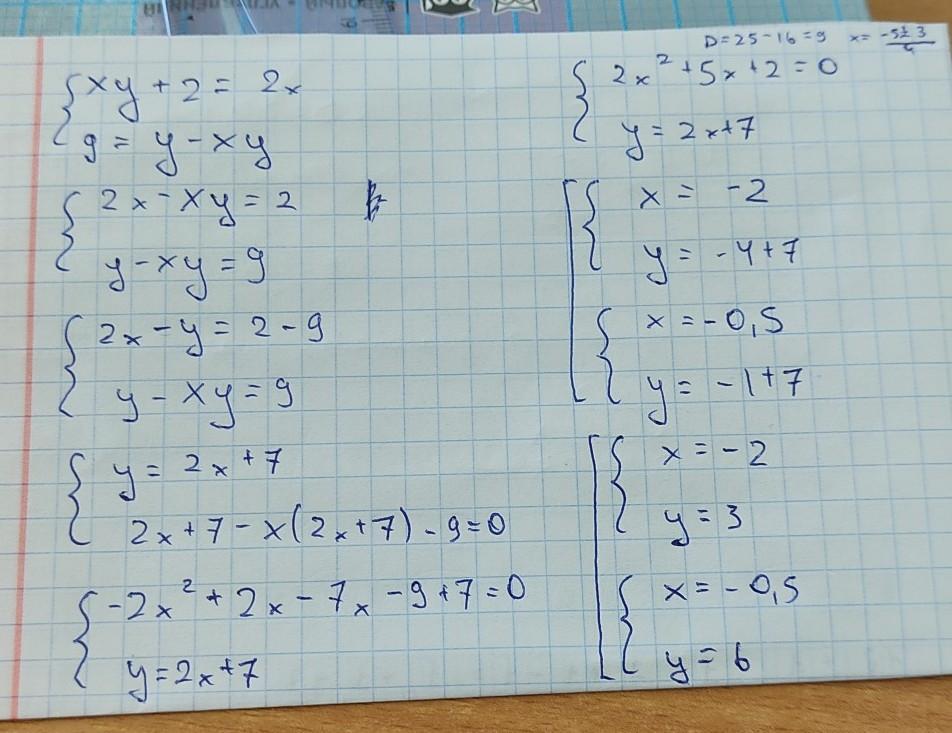 xy + 2 = 2x
9 = y - xy
2x - xy = 2
y - xy = 9
2x - y = 2 - 9
y - xy = 9
y = 2x + 7
2x + 7 - x(2x + 7) - 9 = 0
-2x² + 2x - 7x - 9 + 7 = 0
y = 2x + 7
D = 25 - 16 = 9 x = (-5 ± 3)/4
2x² + 5x + 2 = 0
y = 2x + 7
x = -2
y = -4 + 7
x = -0,5
y = -1 + 7
x = -2
y = 3
x = -0,5
y = 6